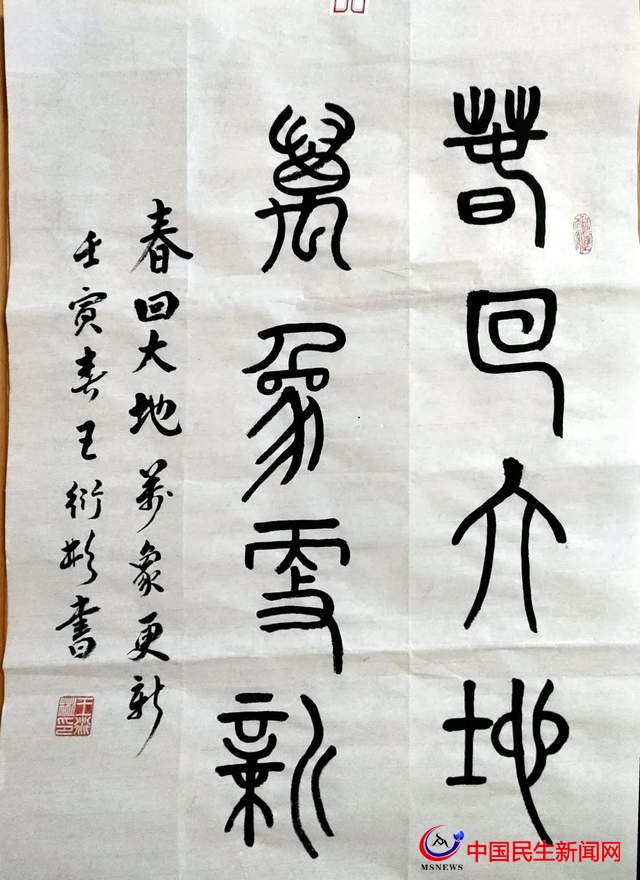 萅回大地
萬象更新
春回大地萬象更新
壬寅春王衍彬書
中国民生新闻网
MSNEWS